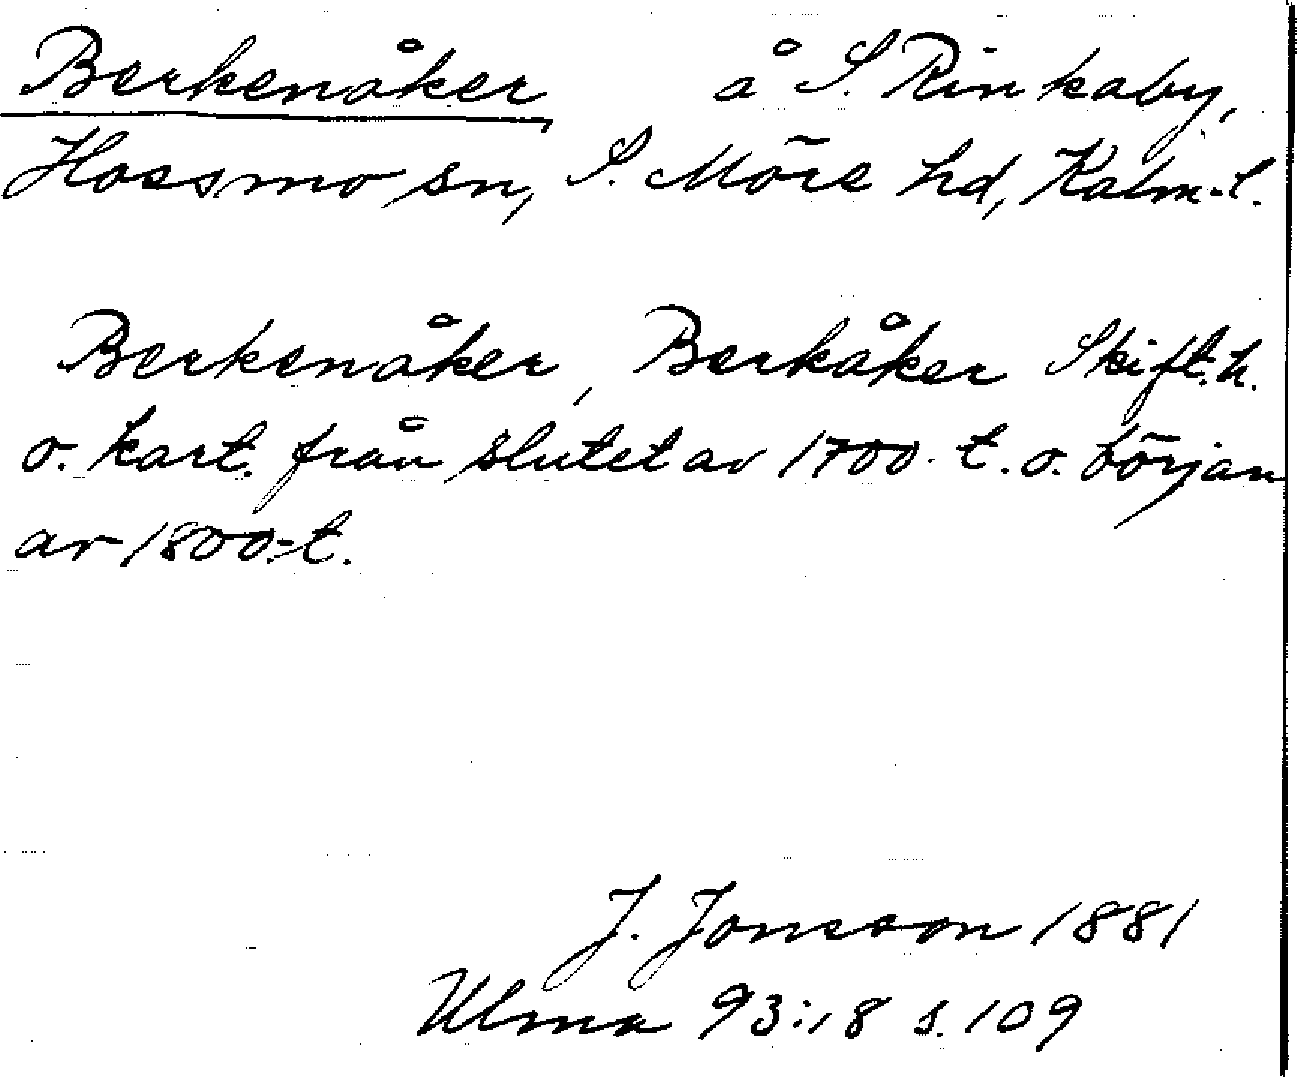 Berkenåker å S. Rinkaby,
Hossmo sn, S. Möre hd, Kalm. l.
Berkenåker, Berkåker Skift.h.
o. kart. från slutet av 1700-t. o. början
av 1800-t.
J. Jonsson 1881
Ulma 93:18 s. 109